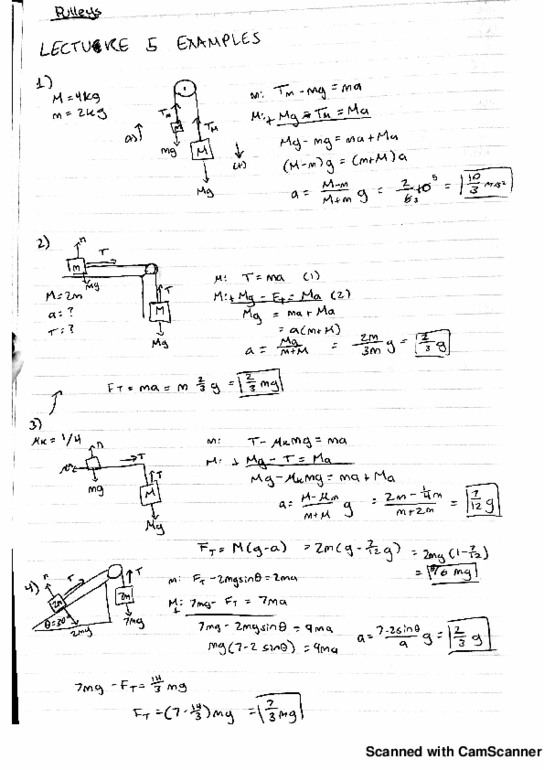 Pulleys
LECTURE 5 EXAMPLES
1)
M = 4kg
m = 2kg
a) ↑
T_m
T_M
m
M
mg
Mg
(+)
m: T_m - mg = ma
M: + Mg - T_m = Ma
Mg - mg = ma + Ma
(M-m)g = (m+M)a
a = M-m / M+m g = 2/6 10 = 10/3 m/s²
2)
n
T
m
Mg
T
M
Mg
M = 2m
a = ?
T = ?
M: T = ma (1)
M: + Mg - F_T = Ma (2)
Mg = ma + Ma
= a(m+M)
a = Mg / m+M = 2m / 3m g = 2/3 g
F_T = ma = m 2/3 g = 2/3 mg
3)
μk = 1/4
n
T
mg
T
M
Mg
m: T - μk mg = ma
M: ↓ Mg - T = Ma
Mg - μk mg = ma + Ma
a = M - μm / m+M g = 2m - 1/4 m / m+2m = 7/12 g
F_T = M(g-a) = 2m(g - 7/12 g) = 2mg (1 - 7/12)
= 5/6 mg
4)
n
T
2m
θ=30°
2mg
T
2m
7mg
m: F_T - 2mgsinθ = 2ma
M: 7mg - F_T = 7ma
7mg - 2mgsinθ = 9ma
mg(7-2 sinθ) = 9ma
a = 7-2sinθ / 9 g = 2/3 g
7mg - F_T = 14/3 mg
F_T = (7 - 14/3) mg = 7/3 mg
Scanned with CamScanner